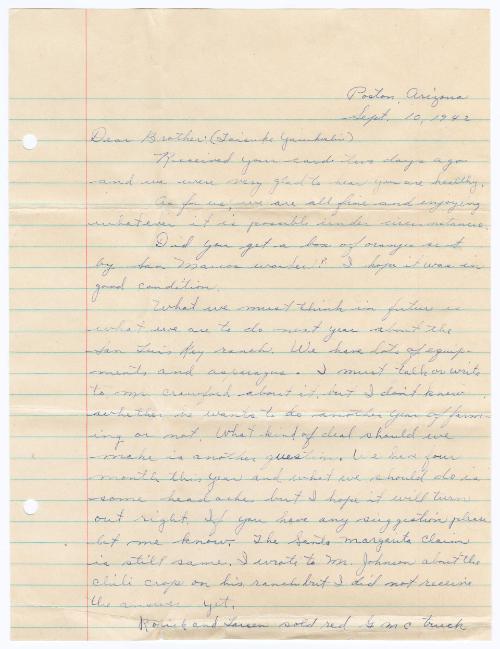 Poston, Arizona
Sept. 10, 1942
Dear Brother: (Taisuke
Received your card two days ago
and we were very glad to hear you are healthy.
As for us, we are all fine and enjoying
whatever it is possible under circumstances.
Did you get a box of oranges sent
by San Marcos worker? I hope it was in
good condition.
What we must think in future is
what we are to do next year about the
San Luis Rey ranch. We have lots of equip-
ments and acerages. I must talk or write
to Mr Crawford about it, but I don't know
whether he wants to do another year of farm-
ing or not. What kind of deal should we
make is another question. We have four
month this year and what we should do is
some headache but I hope it will turn
out right. If you have any suggestion please
let me know. The Santa margarita claim
is still same. I wrote to Mr. Johnson about the
chili crop on his ranch but I did not receive
the answer yet.
and Larsen sold red G M C truck